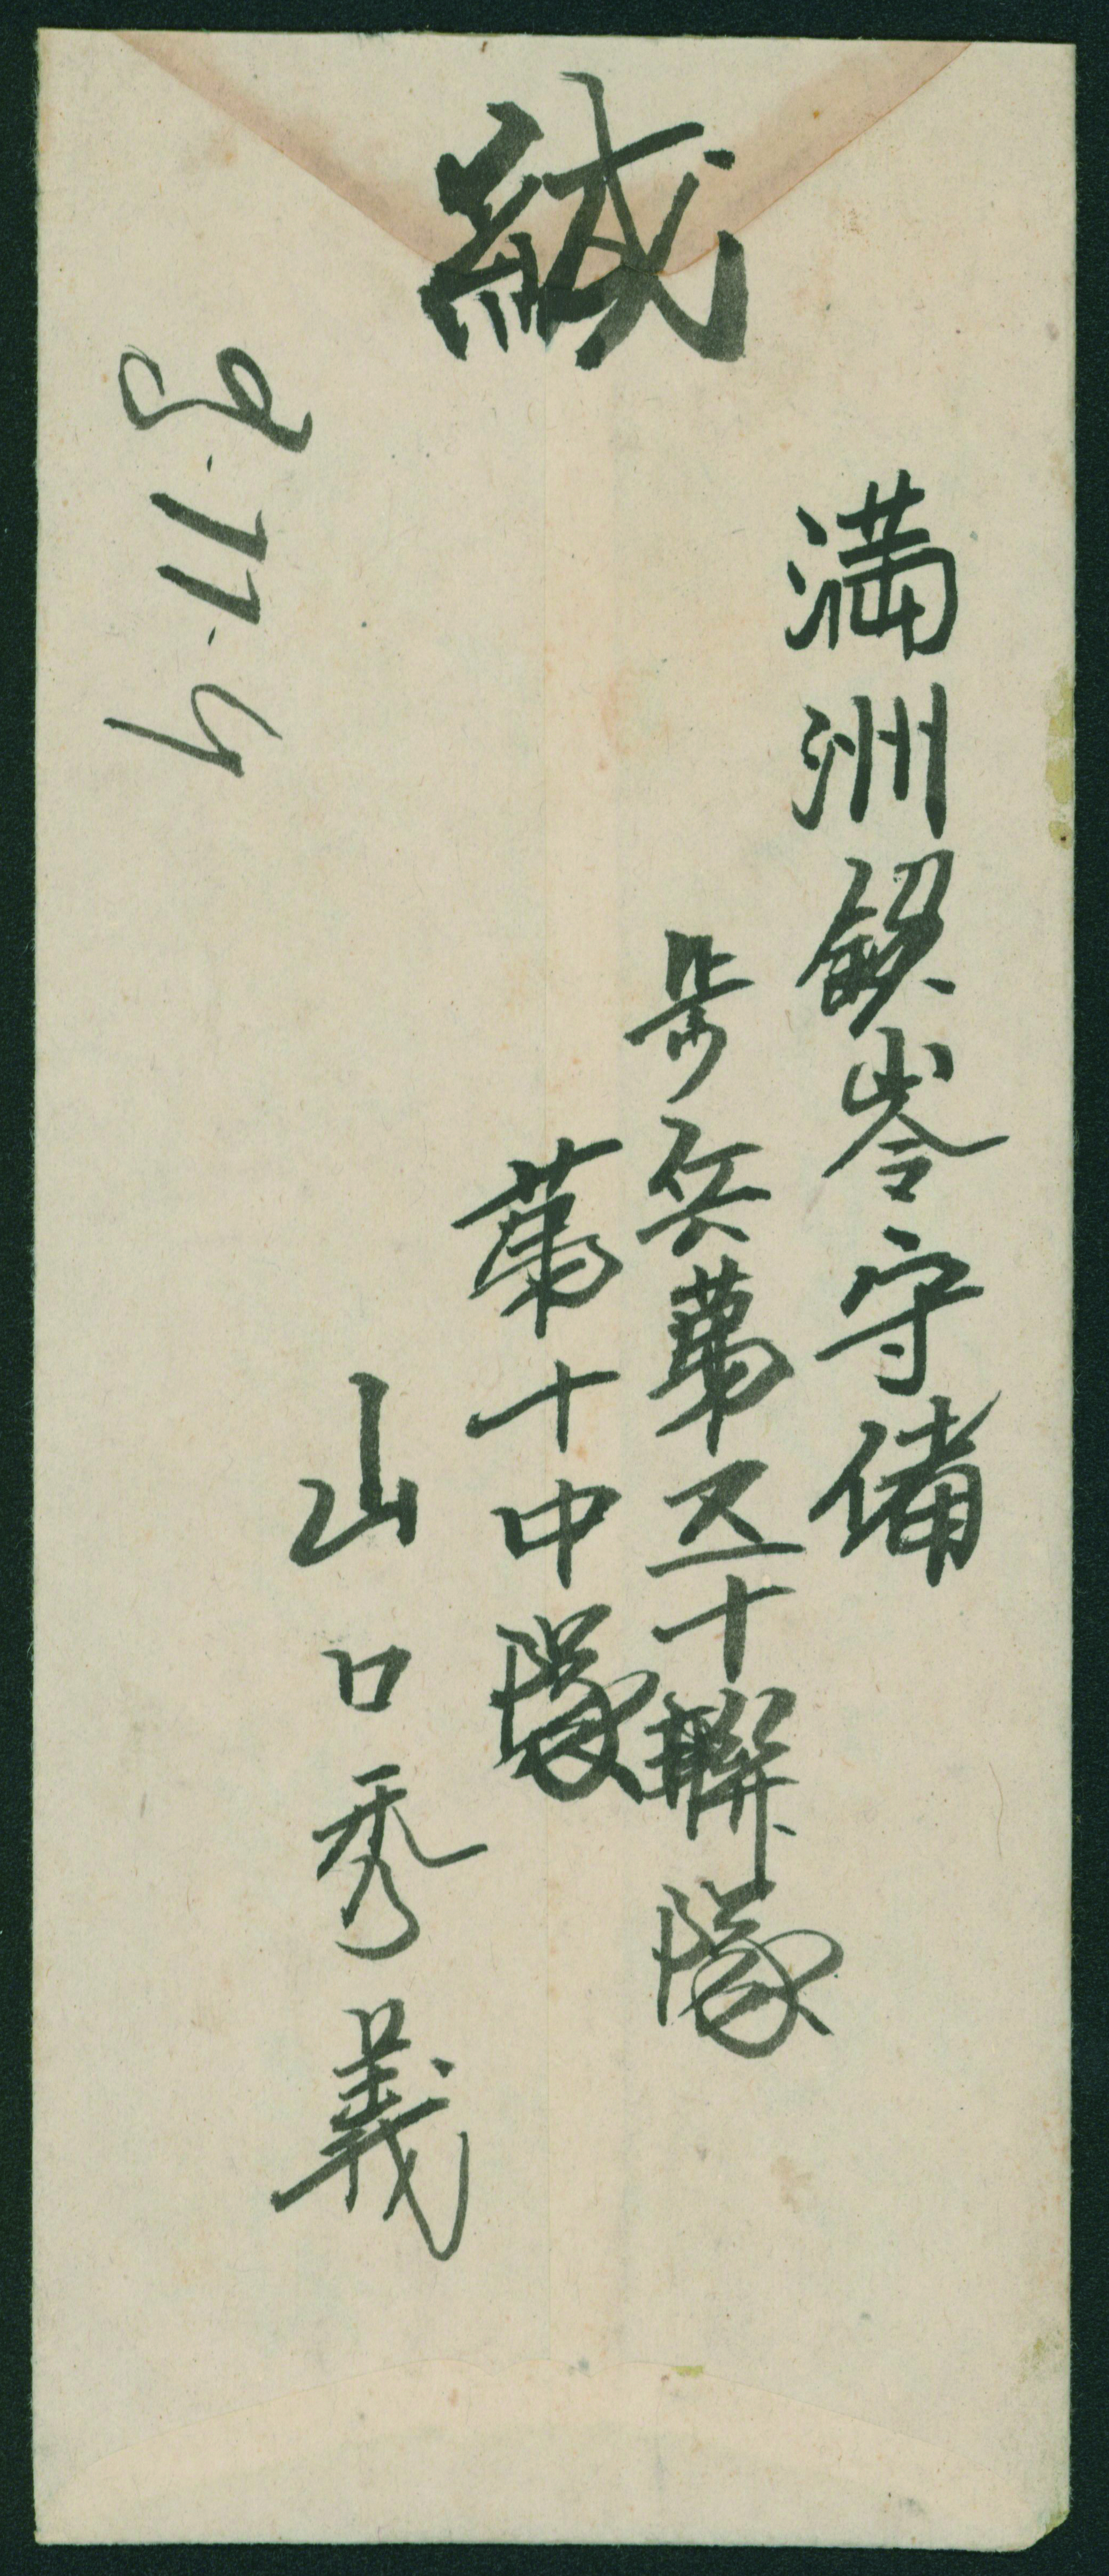 緘
満洲鉄岺守備
歩兵第五十聯隊
第十中隊
山口秀義
8.11.4